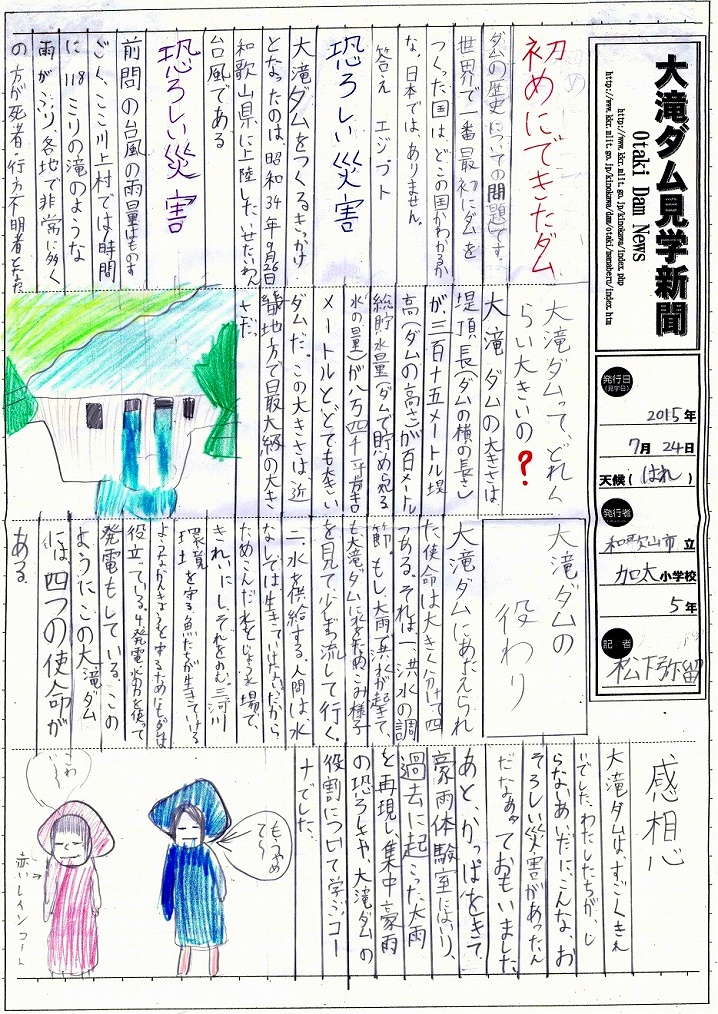 大滝ダム見学新聞
Otaki Dam News
http://www.kkr.mlit.go.jp/kinokawa/index.php
http://www.kkr.mlit.go.jp/kinokawa/dam/otaki/manaberu/index.htm
発行日
(見学日)
2015年
7月24日
天候(はれ)
発行者
和歌山市立
加太小学校
5年
記者
松下弥留
初めにできたダム
ダムの歴史についての問題です。
世界で一番最初にダムを
つくった国はどこの国かわかるか
な、日本では、ありません。
答え エジプト
恐ろしい災害
大滝ダムをつくるきっかけ
となったのは、昭和34年9月26日
和歌山県に上陸したいせわん
台風である
恐ろしい災害
前問の台風の雨量はものす
ごく、ここ川上村では1時間
に118ミリの滝のような
雨がふり、各地で非常に多く
の方が死者・行方不明者となった
大滝ダムって、どれく
らい大きいの?
大滝ダムの大きさは、
堤頂長(ダムの横の長さ)
が、三百十五メートル堤
高(ダムの高さ)が百メートル
総貯水量(ダムで貯められる
水の量)が八万四千
メートルと、とても大きい
ダムだ。この大きさは、近
畿地方で最大級の大き
さだ。
大滝ダムの
役わり
大滝ダムにあたえられ
た使命は大きく分けて四
つある。それは一、洪水の調
節。もし、大雨で洪水が起きて、
も大滝ダムに水をためこみ様子
を見て少しずつ流して行く。
二、水を供給する。人間は、水
なしでは生きていけない。だから
ためこんだ水をじょう水場で
きれいにし、それをのむ。三、河川
環境を守る。魚たちが生きていける
ようなかんきょうを守るためにもダムは
役立っている。4、発電。水力を使って
発電もしている。この
ようにこの大滝ダム
には四つの使命が
ある。
感想
大滝ダムは、すごくきれ
いでした。わたしたちが、し
らないあいだに、こんな、お
そろしい災害があったん
だなぁっておもいました。
あと、かっぱをきて、
豪雨体験室にはいり、
過去に起こった大雨
を再現し、集中豪雨
の恐ろしさや、大滝ダムの
役割について学ぶコー
ナーでした。
もうやめ
て〜
こわ
い〜
赤いレインコート